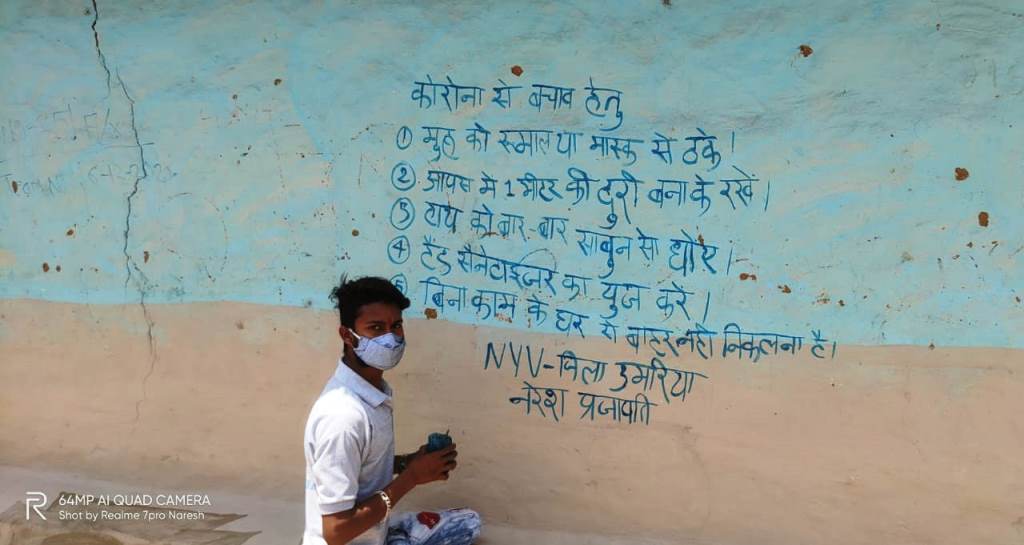 कोरोना से बचाव हेतु
① मुह को रूमाल या मास्क से ढके।
② आपस मे 1 मीटर की दुरी बना के रखे।
③ हाथ को बार-बार साबुन से धोए।
④ हैंड सैनेटाइजर का यूज करे।
⑤ बिना काम के घर से बाहर नही निकलना है।
NYV-जिला उमरिया
नरेश प्रजापति
64MP AI QUAD CAMERA
Shot by Realme 7pro Naresh